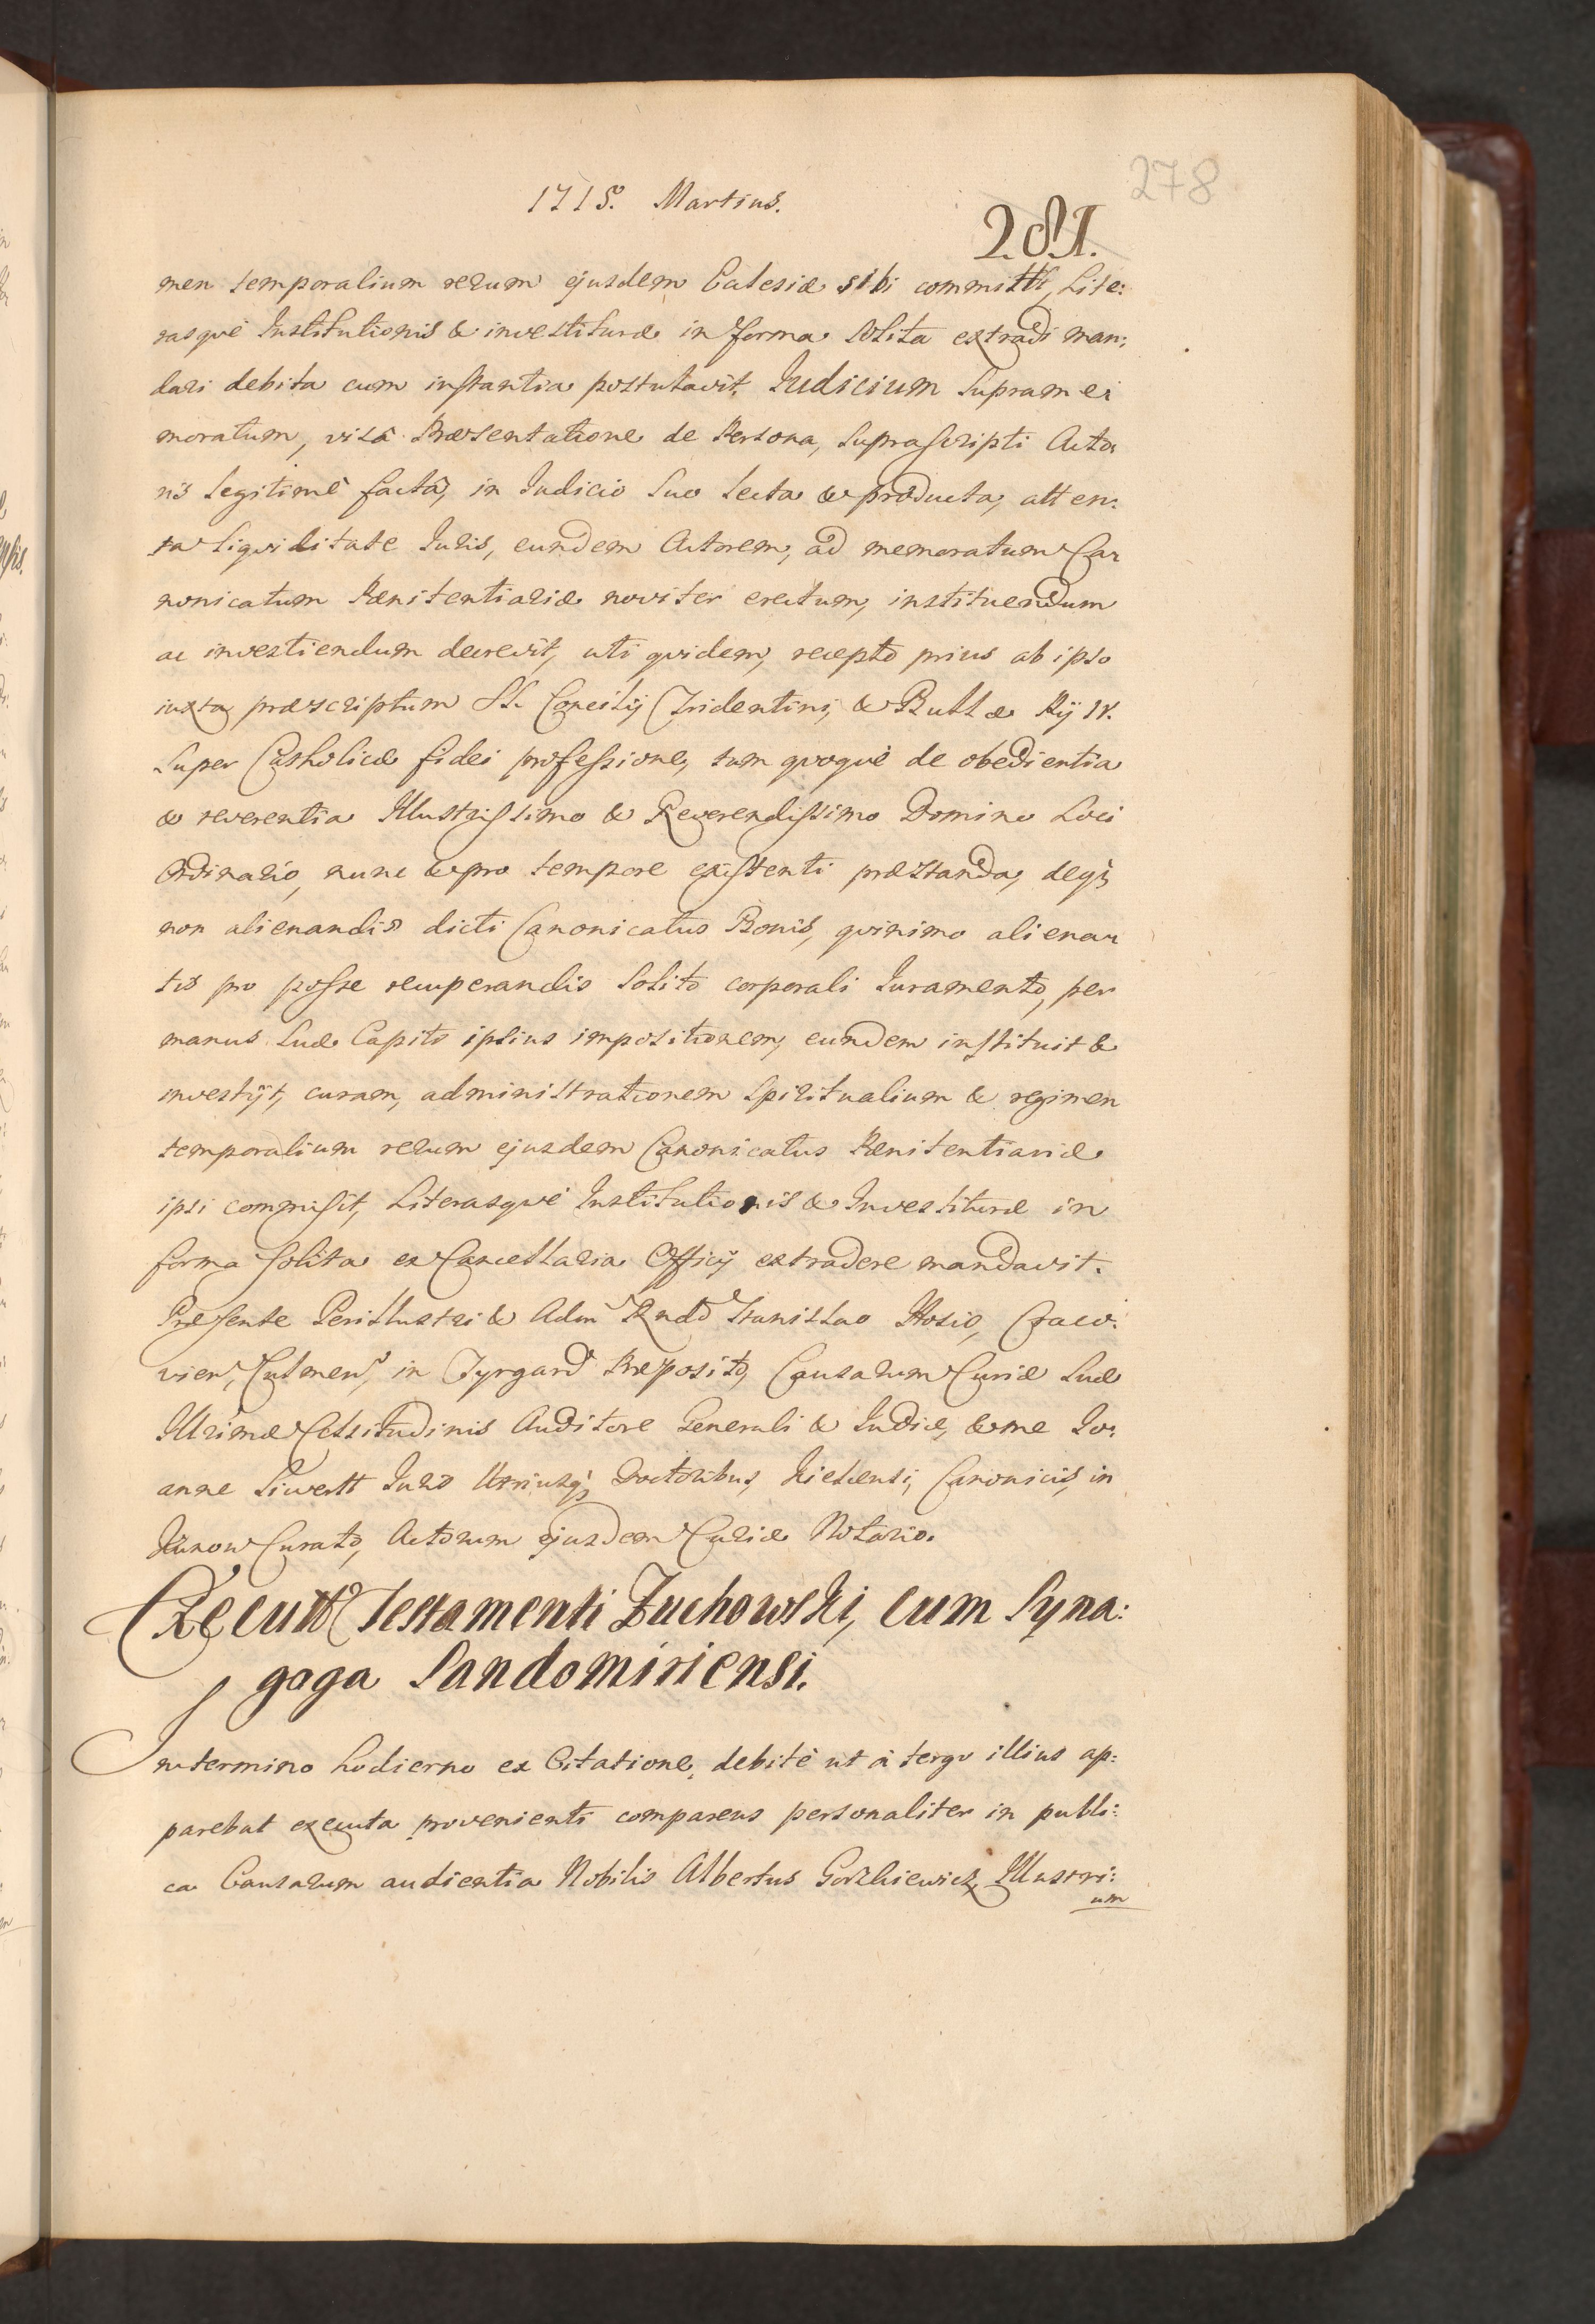 278
1715. Martius.
281.
men temporalium rerum ejusdem Eclesiæ sibi committi, Lite:
rasquè Institutionis & investituræ in forma solita extradi man:
dari debita cum instantia postulavit. Iudicium supramei
moratum, visâ Præsentatione de Persona, suprascripti Acto
ris legitimè factâ, in Iudicio suo lecta & producta, atten:
ta liqviditate Iuris, eundem Actorem, ad memoratum Ca
nonicatum Pænitentiariæ noviter erectum, instituendum
ac investiendum decrevit, uti qvidem, recepto prius ab ipso
iuxta præscriptum SS. Concilij Tridentini, & Bullæ Pij IV.
super Catholicæ fidei professione, tum qvoquè de obedientia
& reverentia Illustrissimo & Reverendissimo Domino Loci
Ordinario, nunc & pro tempore existenti præstanda, deq;
non alienandis dicti Canonicatus Bonis, qvinimo aliena
tis pro posse recuperandis solito corporali Iuramento, per
manus suæ Capiti ipsius impositionem, eundem instituit &
investijt, curam, administrationem spiritualium & regimen
temporalium rerum ejusdem Canonicatus Pænitentiariæ
ipsi commisit, Literasquè Institutionis & Investituræ in
forma solita ex Cancellaria Officij extradere mandavit.
Præsente Perillustri & Adm Rndo Stanislao Hosio, Craco:
vien, Culmen, in Tyrgard Præposito, Causarum Curiæ Suæ
Illrimæ Celsitudinis Auditore Generali & Iudice, & me Io:
anne Siwertt Iuris Utriusq; Doctoribus, Kielcensi, Canonicis, in
Kunow Curato, Actorum ejusdem Curiæ Notario.
Executt Testamenti Zuchowski, cum Syna:
goga Sandomiriensi.
In termino hodierno ex Citatione, debitè ut à tergo illius ap:
parebat executa provenienti comparens personaliter in publi:
ca Causarum audientia Nobilis Albertus Gorzkiewicz, Illustri:
um